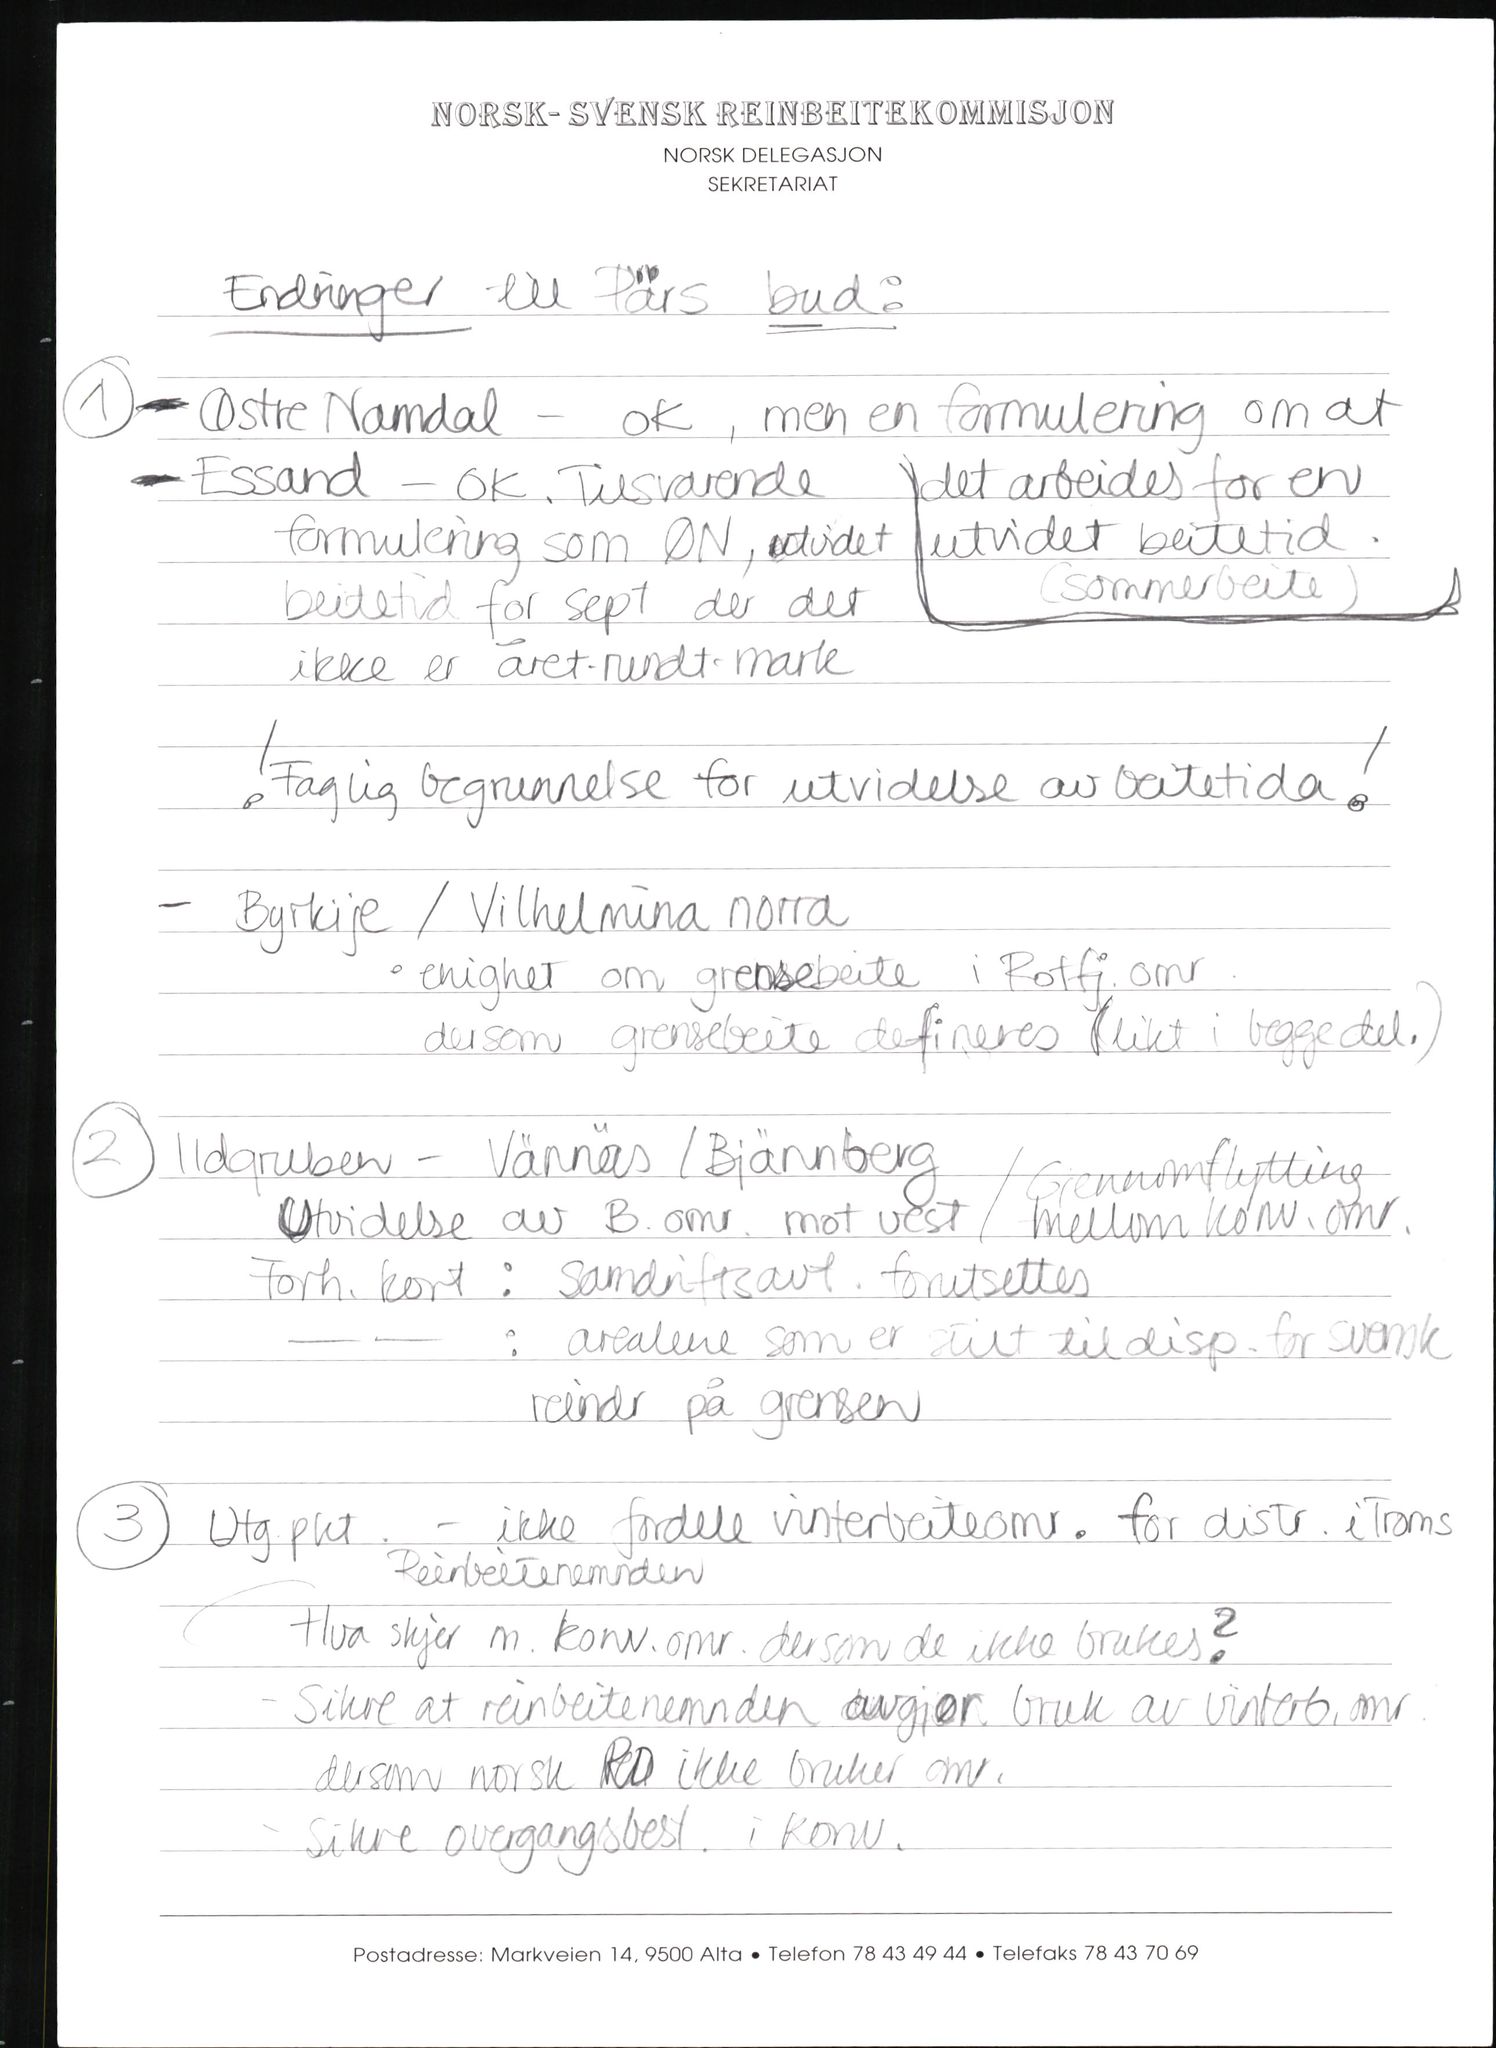 NORSK-SVENSK REINBEITEKOMMISJON
NORSK DELEGASJON
SEKRETARIAT
Endringer til Pärs bud:
1 - Østre Namdal - OK, men en formulering om at
det arbeides for en
utvidet beitetid.
(sommerbeite)
- Essand - OK. Tilsvarende
formulering som ØN, utvidet
beitetid for sept der det
ikke er året-rundt-mark
! Faglig begrunnelse for utvidelse av beitetida !
- Byrkije / Vilhelmina norra
• enighet om grensebeite i Rotfj. omr.
dersom grensebeite defineres (likt i begge del.)
2 Ildgruben - Vännäs / Bjännberg
Utvidelse av B. omr. mot vest / Gjennomflytting
mellom konv. omr.
Forh. kort : samdriftsavt. forutsettes
— — : arealene som er stilt til disp. for svensk
reindr på grensen
3 Utg.pkt. - ikke fordele vinterbeiteomr. for distr. i Troms
Reinbeitenemnden
Hva skjer m. konv. omr. dersom de ikke brukes?
- Sikre at reinbeitenemnden avgjør bruk av vinterb. omr.
dersom norsk RD ikke bruker omr.
- Sikre overgangsbest. i konv.
Postadresse: Markveien 14, 9500 Alta • Telefon 78 43 49 44 • Telefaks 78 43 70 69